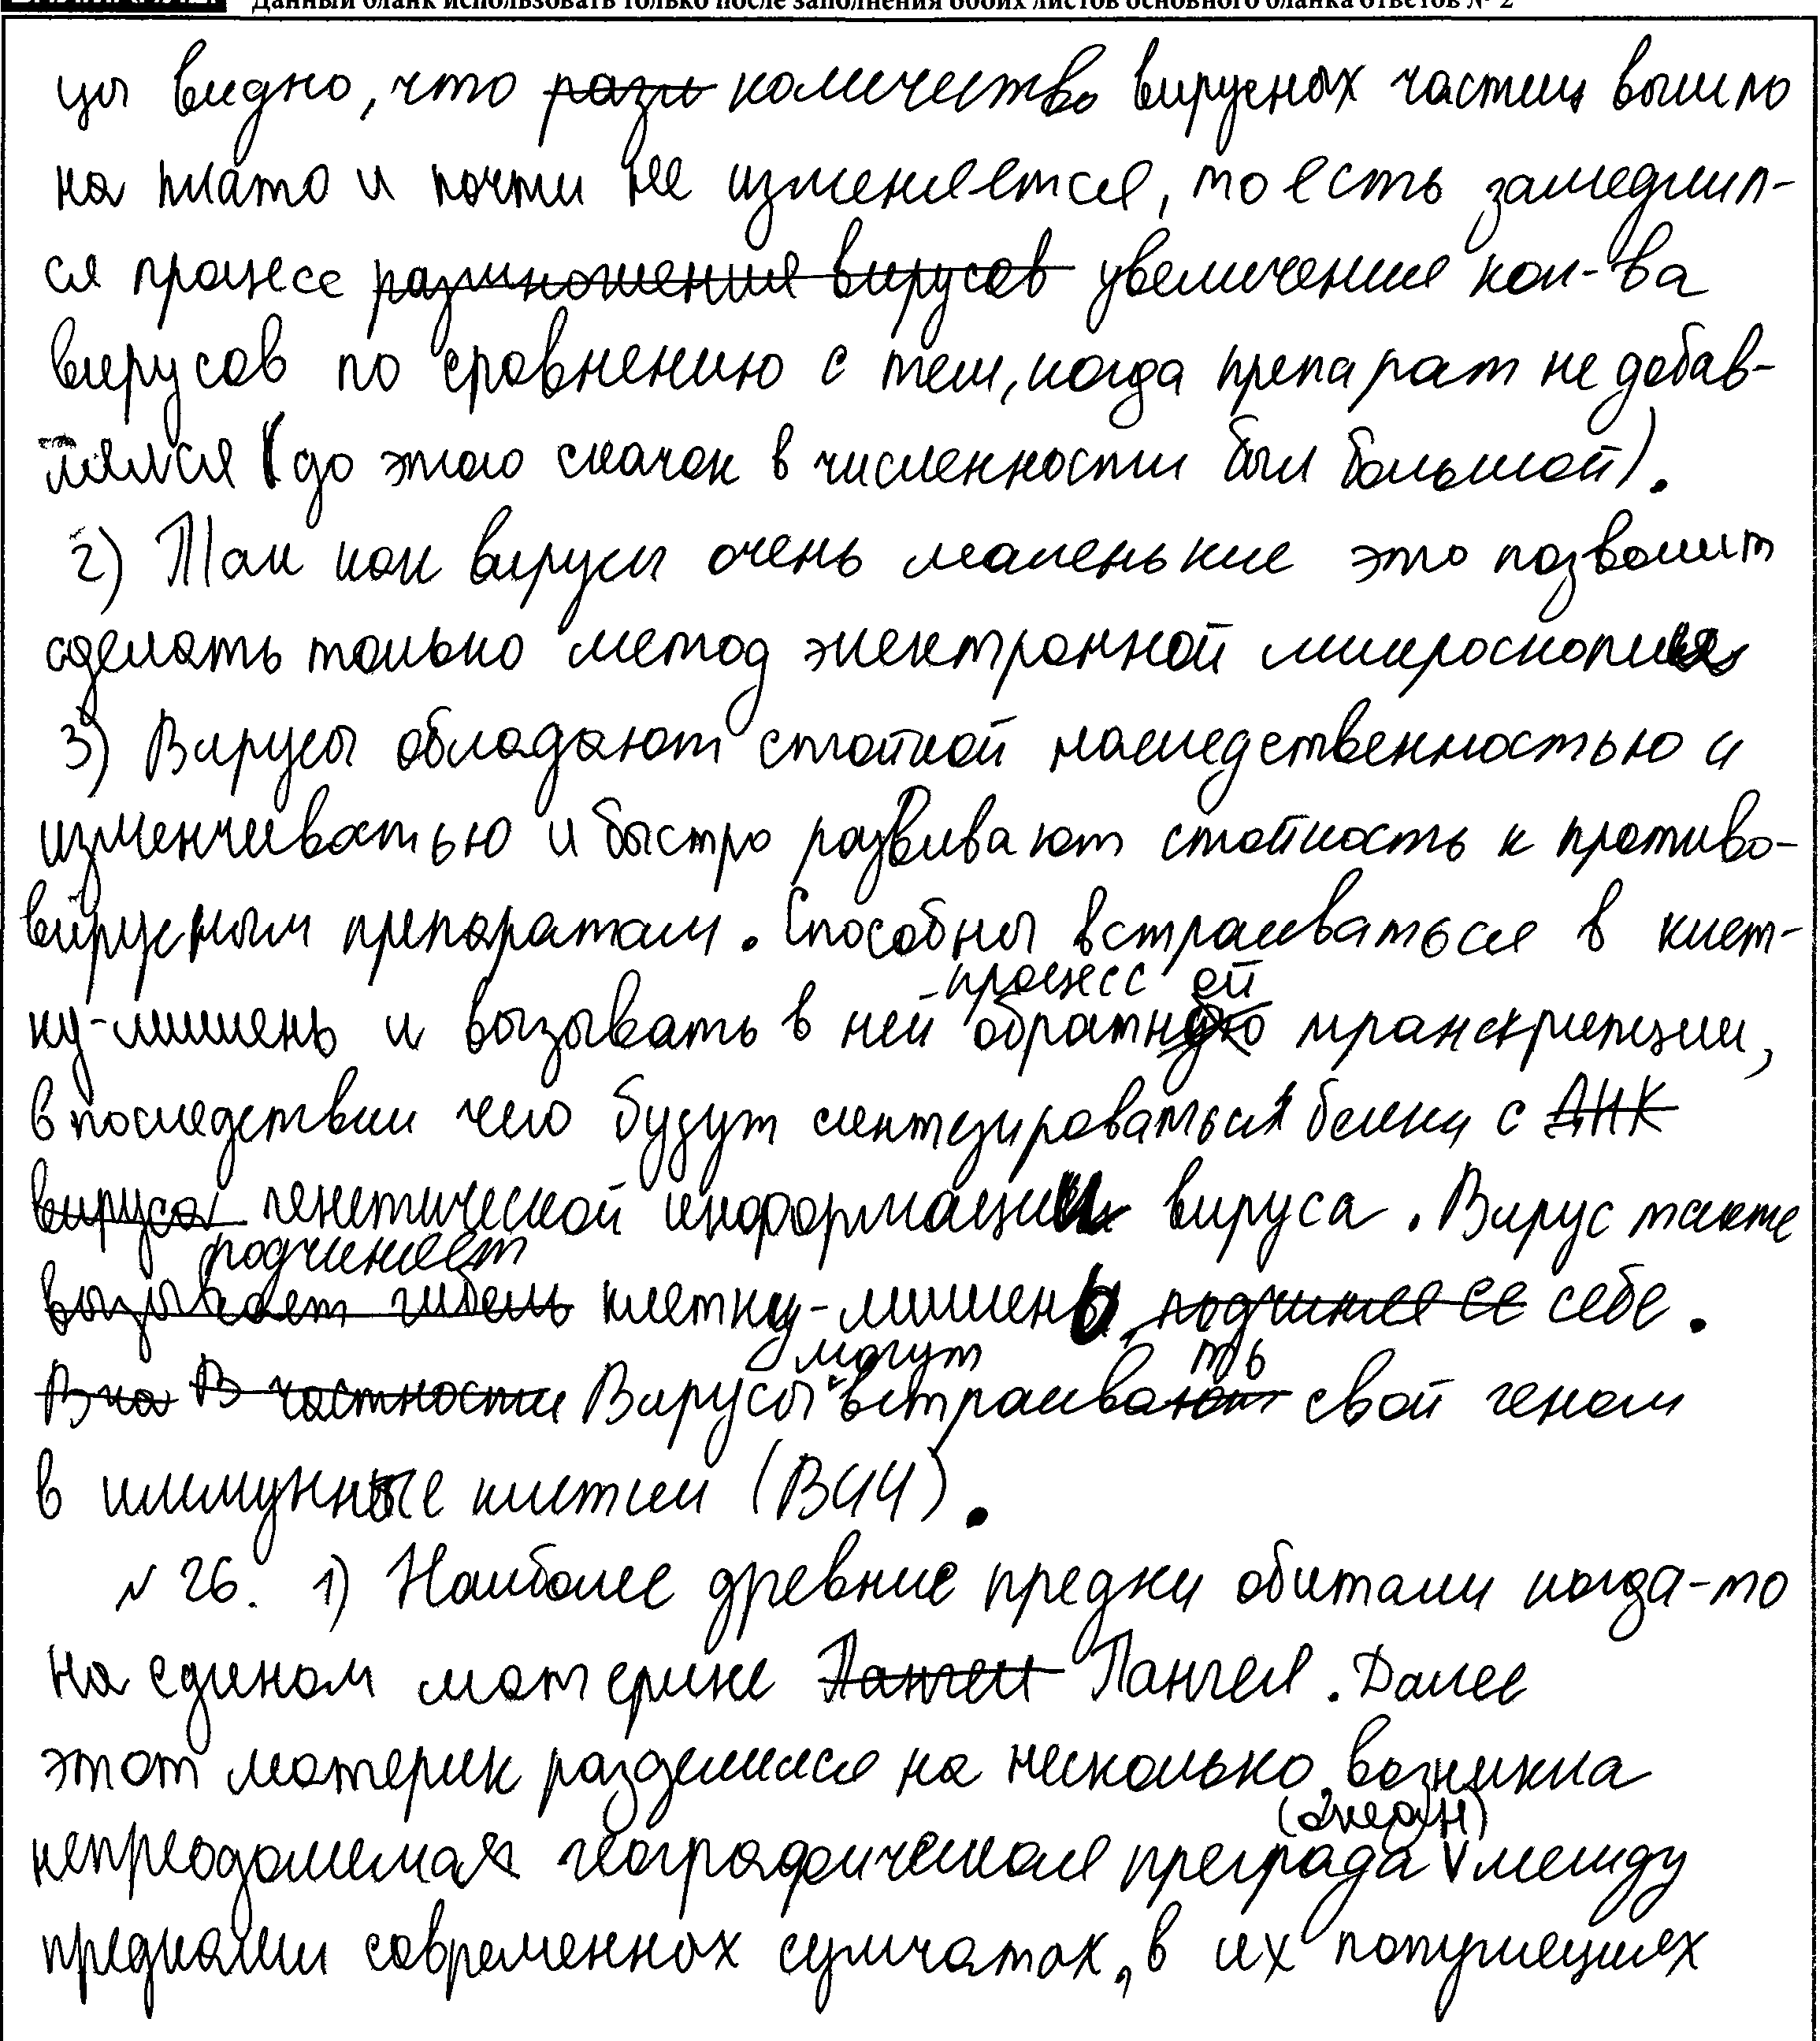 Данный бланк использовать только после заполнения обоих листов основного бланка ответов № 2
цы видно, что разм количество вирусных частиц вышло
на плато и почти не изменяется, то есть замедлил-
ся процесс размножения вирусов увеличения кол-ва
вирусов по сравнению с тем, когда препарат не добав-
лялся (до этого скачок в численности был большой).
2) Так как вирусы очень маленькие это позволит
сделать только метод электронной микроскопии
3) Вирусы обладают стойкой наследственностью и
изменчивостью и быстро развивают стойкость к противо-
вирусным препаратам. Способны встраиваться в клет-
процесс ой
ку-мишень и вызывать в ней обратную транскрипции,
в последствии чего будут синтезироваться белки с ДНК
вируса генетической информации вируса. Вирус также
подчиняет
вызывает гибель клетку-мишень, подчиняя ее себе.
могут ть
В ка В частности Вирусы встраивают свой геном
в иммунные клетки (ВИЧ).
№ 26. 1) Наиболее древние предки обитали когда-то
на едином материке Пангеи Пангея. Далее
этот материк разделился на несколько, возникла
(океан)
непреодолимая географическая преграда V между
предками современных сумчатых, в их популяциях